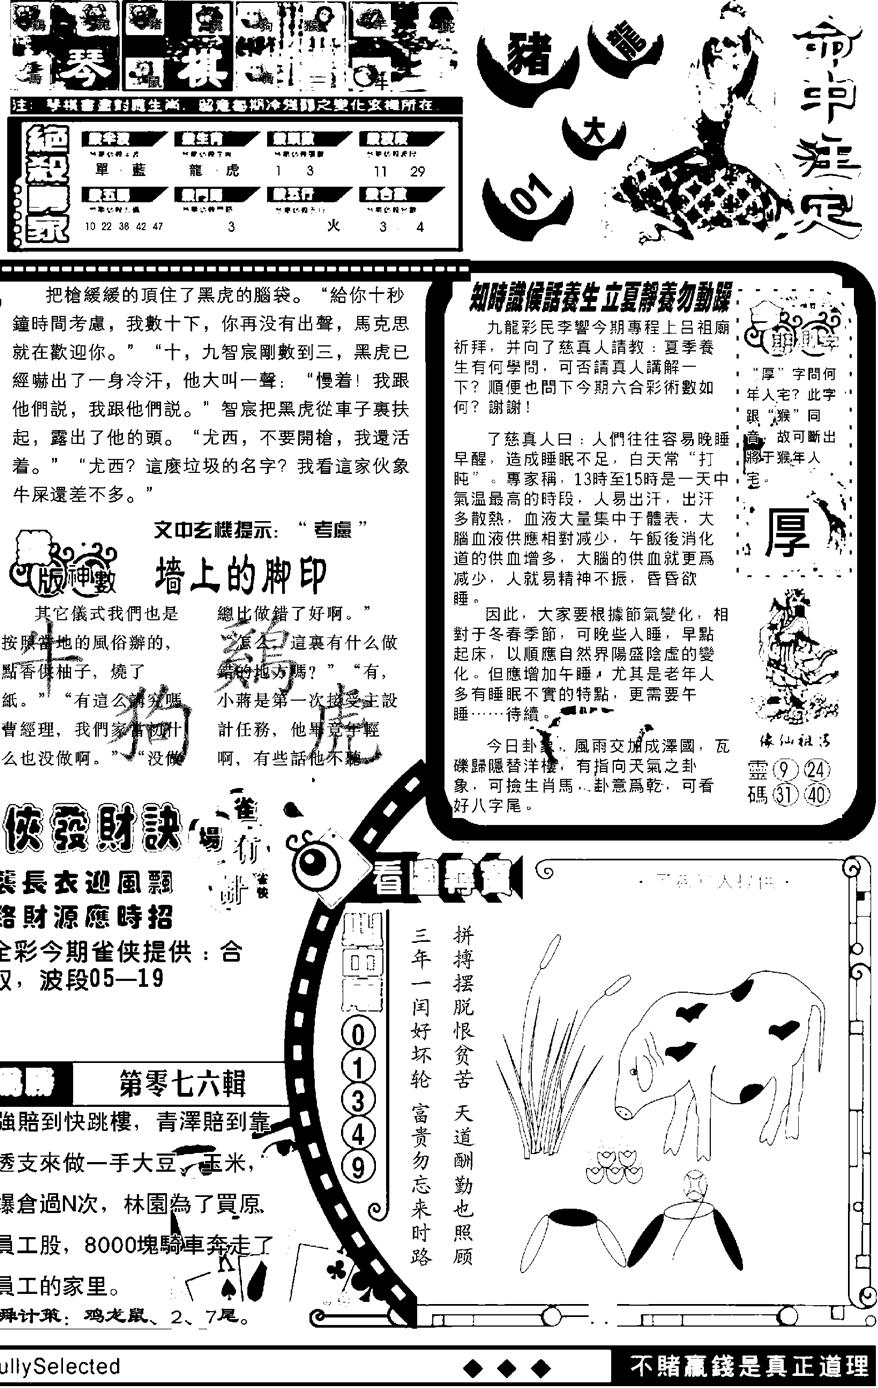 琴 棋
注：琴棋書畫對應生肖，留意每期冷強弱之變化玄機所在
絕殺專家
單·藍 龍·虎 1 3 11 29
10 22 38 42 47 3 火 3·4
豬 龍 大 01
命中注定
把槍緩緩的頂住了黑虎的腦袋。“給你十秒
鐘時間考慮，我數十下，你再没有出聲，馬克思
就在歡迎你。”“十，九智宸剛數到三，黑虎已
經嚇出了一身冷汗，他大叫一聲：“慢着！我跟
他們説，我跟他們説。”智宸把黑虎從車子裏扶
起，露出了他的頭。“尤西，不要開槍，我還活
着。”“尤西？這麼垃圾的名字？我看這家伙象
牛屎還差不多。”
文中玄機提示：“考慮”
版神數
墙上的脚印
其它儀式我們也是
按照當地的風俗辦的，
點香供柚子，燒了
紙。”“有這么講究嗎
曹經理，我們家當初什
么也没做啊。”“没做
總比做錯了好啊。”
怎么，這裏有什么做
錯的地方嗎？”“有，
小蔣是第一次接受主設
計任務，他畢竟年輕
啊，有些話他不聽
牛 狗 鷄 虎
知時識候話養生 立夏靜養勿動躁
九龍彩民李響今期專程上吕祖廟
祈拜，并向了慈真人請教：夏季養
生有何學問，可否請真人講解一
下？順便也問下今期六合彩術數如
何？謝謝！
了慈真人曰：人們往往容易晚睡
早醒，造成睡眠不足，白天常“打
盹”。專家稱，13時至15時是一天中
氣温最高的時段，人易出汗，出汗
多散熱，血液大量集中于體表，大
腦血液供應相對减少，午飯後消化
道的供血增多，大腦的供血就更爲
减少，人就易精神不振，昏昏欲
睡。
因此，大家要根據節氣變化，相
對于冬春季節，可晚些人睡，早點
起床，以順應自然界陽盛陰虚的變
化。但應增加午睡，尤其是老年人
多有睡眠不實的特點，更需要午
睡……待續。
今日卦象，風雨交加成澤國，瓦
礫歸隱替洋樓，有指向天氣之卦
象，可撿生肖馬，卦意爲乾，可看
好八字尾。
一期測字
“厚”字問何
年人宅？此字
跟“猴”同
音，故可斷出
將于猴年人
宅。
厚
靈碼 9 24 31 40
俠發財訣
場
雀
有
計
雀俠
襲長衣迎風飄
路財源應時招
全彩今期雀侠提供：合
双，波段05—19
第零七六輯
強賠到快跳樓，青澤賠到靠
透支來做一手大豆、玉米，
爆倉過N次，林園為了買原
員工股，8000塊騎車奔走了
員工的家里。
舜计策：鸡龙鼠、2、7尾。
K
看圖尋寶
0
1
3
4
9
拼搏摆脱恨贫苦 天道酬勤也照顾
三年一闰好坏轮 富贵勿忘来时路
ullySelected
◆ ◆ ◆
不賭贏錢是真正道理